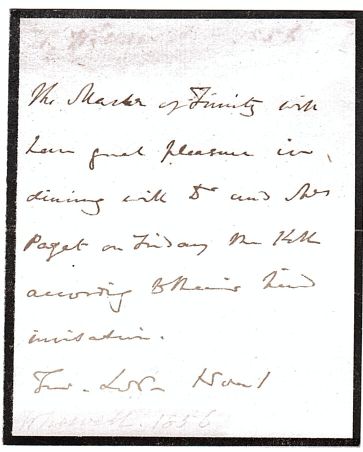 The Master of Trinity will
have great pleasure in
dining with Dr and Mrs
Paget on Friday the 16th
according to their kind
invitation.
Trin. Nov 1
Whewell. 1856